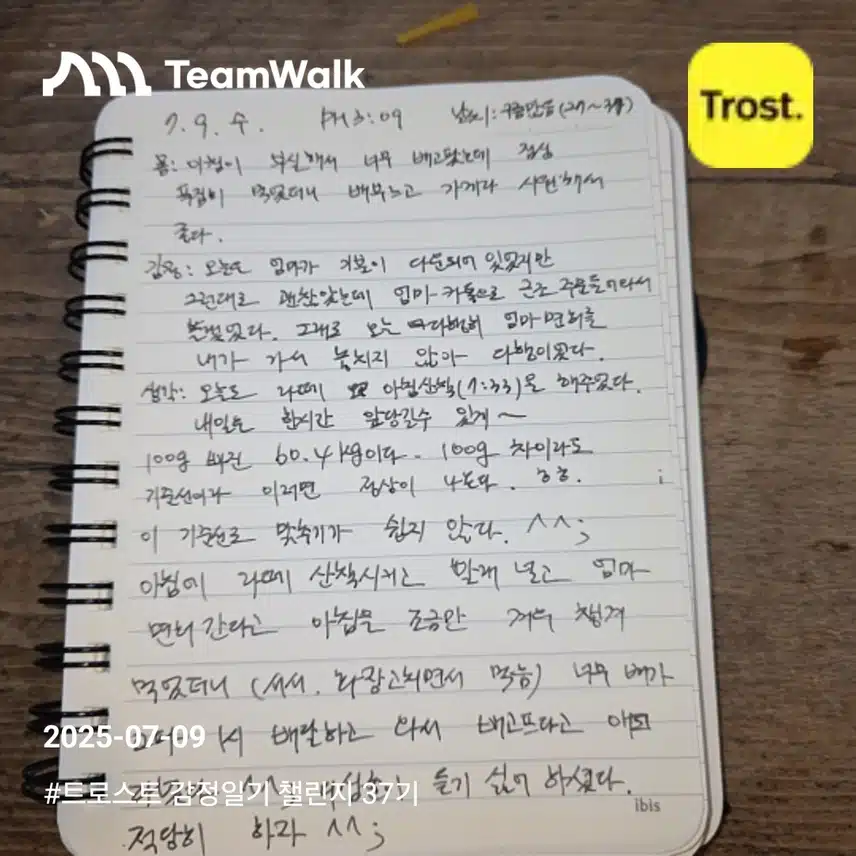 TeamWalk
Trost.
7. 9. 수. PM 3:09 날씨: 구름만음 (27~34)
몸: 아침이 부실해서 너무 배고팠는데 점심
푸짐히 먹었더니 배부르고 가게라 시원해서
좋다.
감정: 오늘도 엄마가 기분이 다운되어 있었지만
그런대로 괜찮았는데 엄마 카톡으로 주문들어와서
그래도 오는 엄마 면회를
내가 가서 놓치지 않아 다행이었다.
생각: 오늘도 라떼 아침산책(7:33)을 해주었다.
내일은 한시간 앞당길수 있게~
100g 빠진 60.4kg이다. 100g 차이라도
기준선이라 이러면 정상이 나온다. ㅎㅎ.
이 기준선로 맞추기가 쉽지 않다. ^^;
아침에 라떼 산책시키고 빨래 널고 엄마
면회 간다고 아침을 조금만 겨우 챙겨
먹었더니 (서서. 화장고치면서 먹음) 너무 배가
1시 배달하고 와서 배고프다고
2025-07-09
듣기 싫어 하셨다.
#트로스트 감정일기 챌린지 37기
적당히 하자 ^^;
ibis